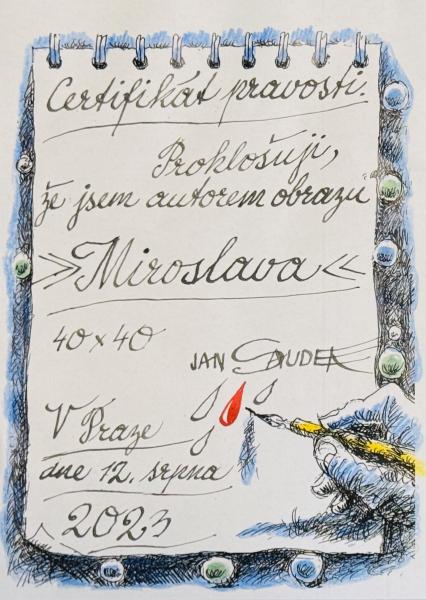 Certifikát pravosti.
Prohlašuji,
že jsem autorem obrazu
»Miroslava«
40×40
JAN SAUDEK
V Praze
dne 12. srpna
2023